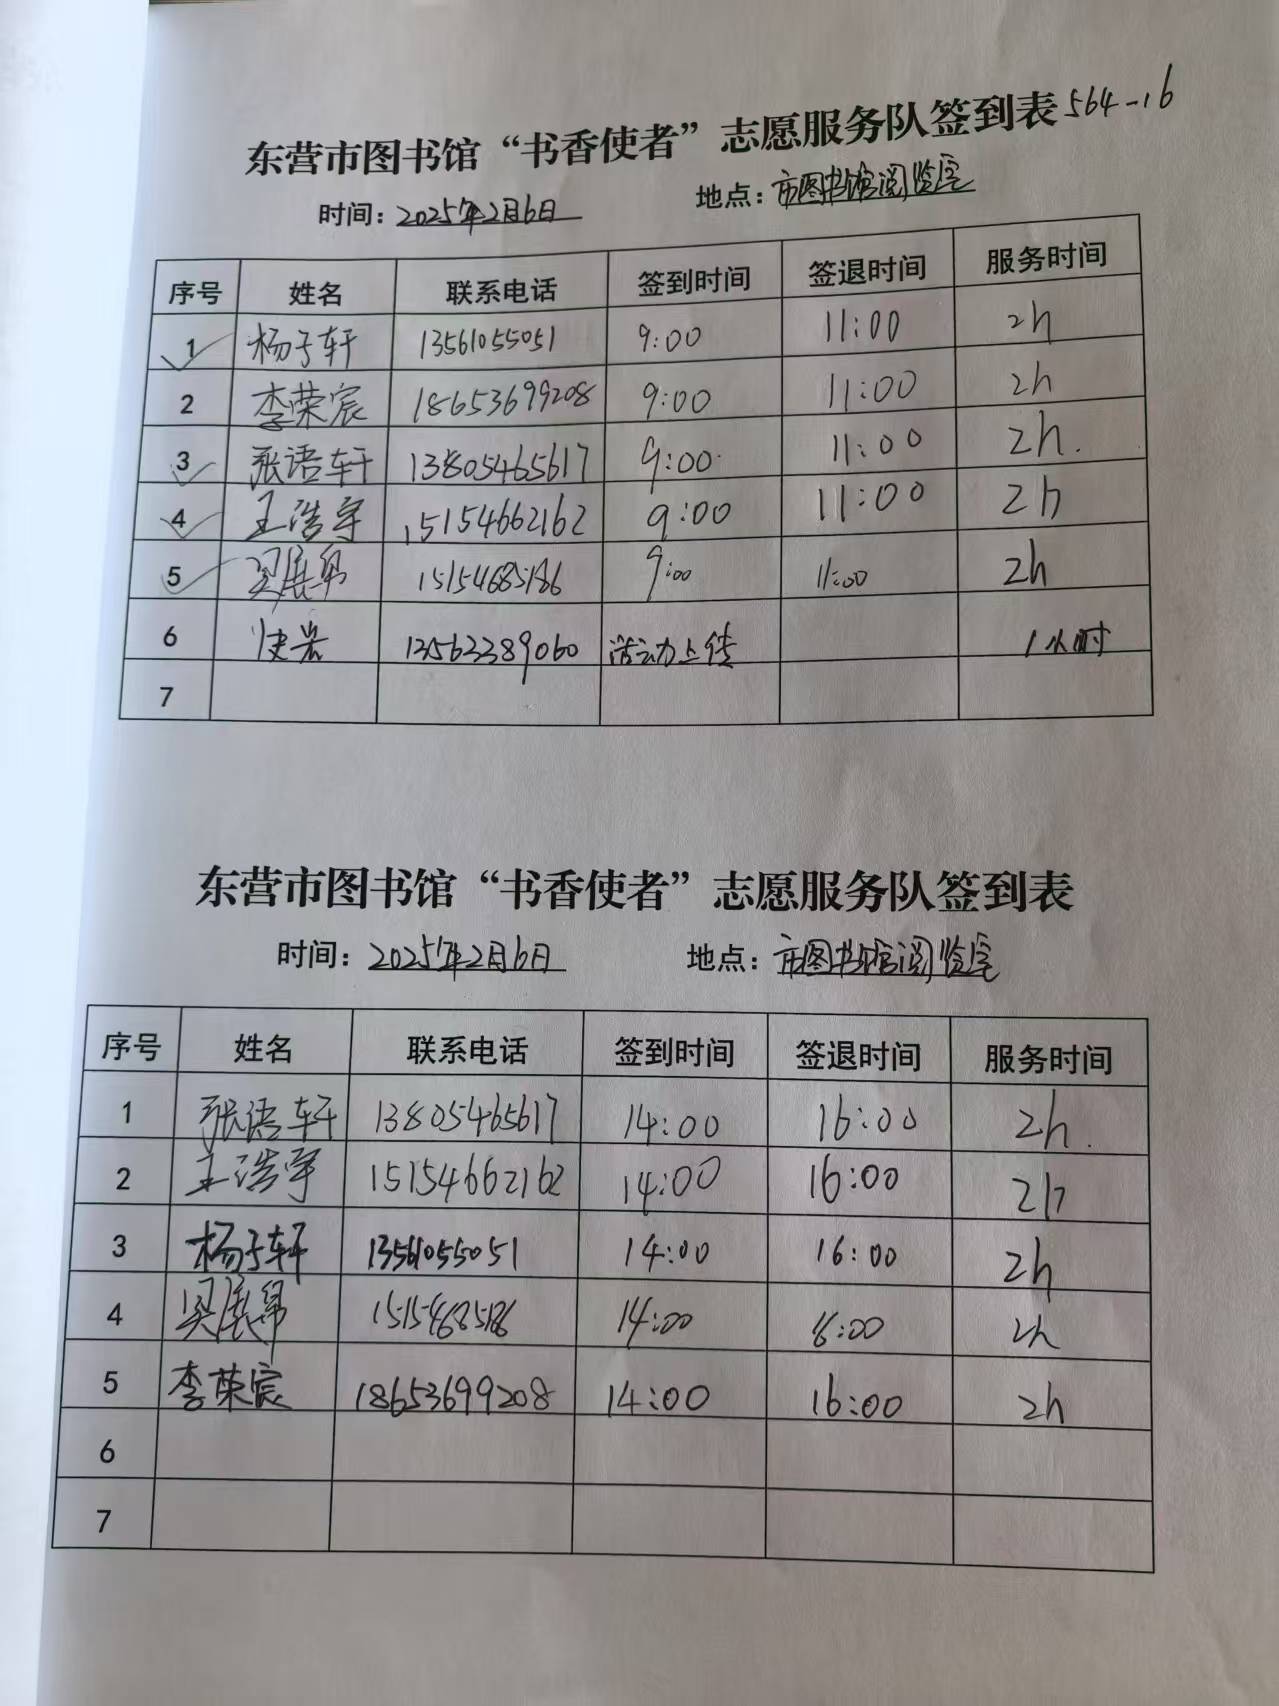 东营市图书馆“书香使者”志愿服务队签到表 564-16
时间：2025年2月6日 地点：市图书馆阅览室
序号 姓名 联系电话 签到时间 签退时间 服务时间
1 杨子轩 13561055051 9:00 11:00 2h
2 李荣宸 18653699208 9:00 11:00 2h
3 张语轩 13805465617 9:00 11:00 2h.
4 王浩宇 15154662162 9:00 11:00 2h
5 吴展昂 15154685186 9:00 11:00 2h
6 13562389060 活动上传 1小时
7
东营市图书馆“书香使者”志愿服务队签到表
时间：2025年2月6日 地点：市图书馆阅览室
序号 姓名 联系电话 签到时间 签退时间 服务时间
1 张语轩 13805465617 14:00 16:00 2h.
2 王浩宇 15154662162 14:00 16:00 2h
3 杨子轩 13561055051 14:00 16:00 2h
4 吴展昂 15154685186 14:00 16:00 2h
5 李荣宸 18653699208 14:00 16:00 2h
6
7